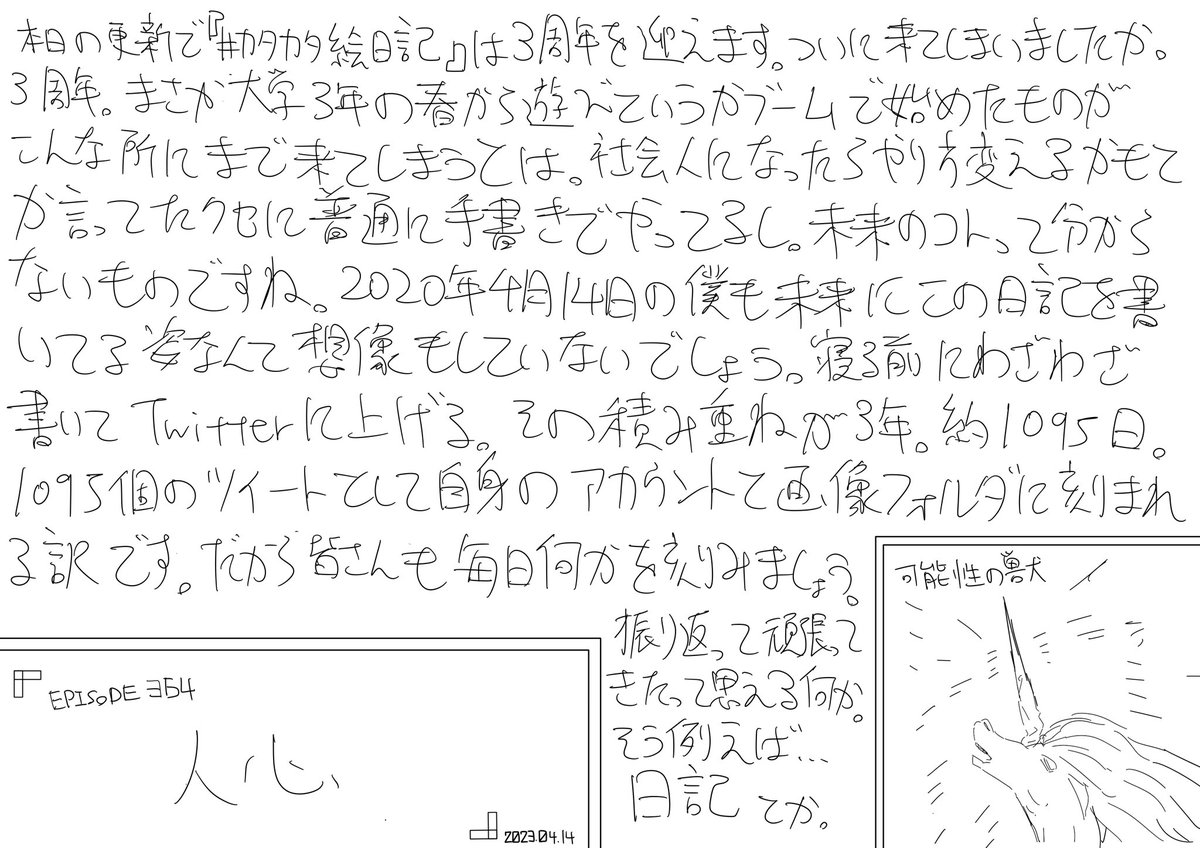 本日の更新で『#カタカタ絵日記』は3周年を迎えます。ついに来てしまいましたか。
3周年。まさか大学3年の春から遊べていうかブームで始めたものが
こんな所にまで来てしまうとは。社会人になったらやり方変えるかもと
か言ってたクセに普通に手書きでやってるし。未来のコトって分から
ないものですね。2020年4月14日の僕も未来にこの日記を書
いてる姿なんて想像もしていないでしょう。寝る前にわざわざ
書いてTwitterに上げる。その積み重ねが3年。約1095日。
1095個のツイートとして自身のアカウントと画像フォルダに刻まれ
る訳です。だから皆さんも毎日何かを刻みましょう。
振り返って頑張って
きたって思える何か。
そう例えば…
日記とか。
EPISODE 354
人心
2023.04.14
可能性の獣